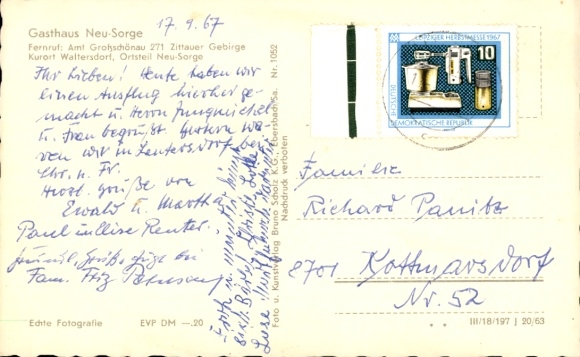 Gasthaus Neu-Sorge
17.9.67
Fernruf: Amt Großschönau 271 Zittauer Gebirge
Kurort Waltersdorf, Ortsteil Neu-Sorge
Ihr Lieben! Heute haben wir
einen Ausflug hierher ge-
macht u. Herrn
u. Frau begrüßt. Gestern wa-
ren wir in Leutersdorf bei
Chr. u. Fr.
Herzl. Grüße von
Ewald u. Martha
Paul u. Liese Renter.
freundl. Grüße
Fam. Fritz
Echte Fotografie
EVP DM —.20
Nr. 1052
Foto u. Kunstverlag Bruno Scholz K.G., Ebersbach/Sa.
Nachdruck verboten
LEIPZIGER HERBSTMESSE 1967
10
DEUTSCHE
DEMOKRATISCHE REPUBLIK
Familie
Richard Panitz
8701 Kottmarsdorf
Nr. 52
III/18/197 J 20/63